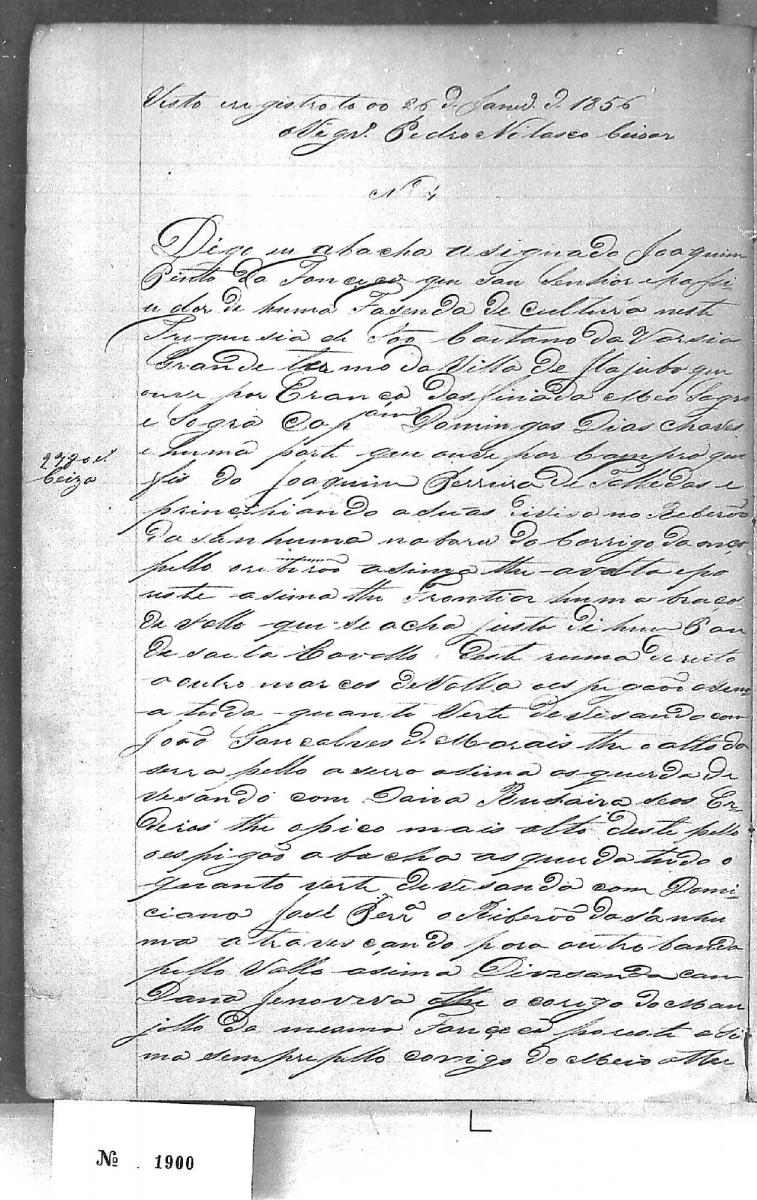 Visto e registrato ao 26 de Janrº. d. 1856
O Vegrº. Pedro Nolasco Ceizar
Nº 4
Digo eu abacha asignado Joaquim
Pinto da Fonceca que sou Senhor e possi
u dor de huma Fazenda de cultura neste
Freguesia de São Caetano da Varsia
Grande termo da Villa de Itajuba que
ouve por Erança dos finada Meo Sogro
e Sogra Capam Domingos Dias chaves
e huma parte que ouve por Compra que
fis do Joaquim Pereira de Tolledas e
principiando a suas divisa no Riberão
da sanhuma na bara do Corrigo do meo
pello oribirão asima the a volta e po
reste asima the Frontiar huma braço
de Vallo que se acha justo di hum Pau
de santa Cavallo deste ruma direito
a outro marcos de Valla oespigaão asim
a tudo quanto Verte devesando com
João Gonçalves de Morais the o alto da
serra pello a serro asima asquerda de
vesando com Dana Rusaira seos Er
deros the opico mais alto deste pello
oespigão abacha asquerda tudo o
quanto verte devesando com Domi
ciano José Perª o Riberão da sanhu
ma atravesçando para outro banda
pello Vallo asima Divesanda com
Dana Jenoveva athe o corigo do Mon
jollo da mesma Fonceca poreste asi
ma sempre pello corrigo do Meio athe
Ceiza
Nº 1900